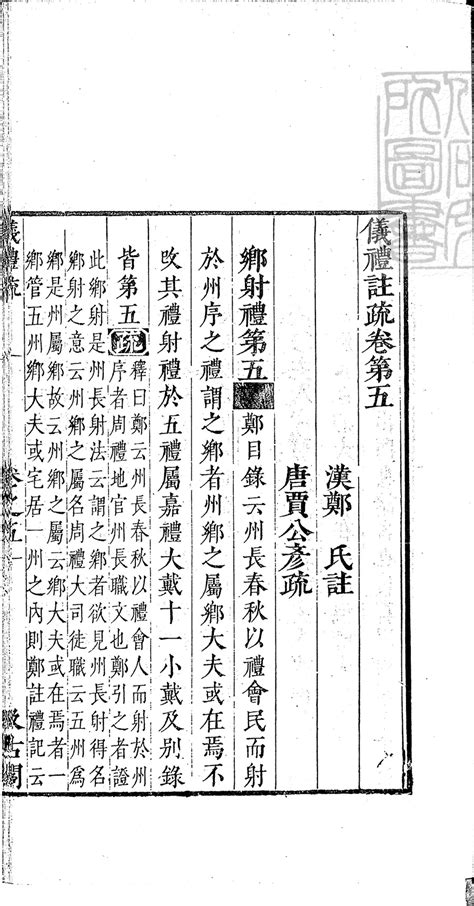 圖書
儀禮註疏卷第五
漢鄭 氏註
唐賈公彥疏
鄉射禮第五 鄭目錄云州長春秋以禮會民而射
於州序之禮謂之鄉者州鄉之屬鄉大夫或在焉不
改其禮射禮於五禮屬嘉禮大戴十一小戴及別錄
皆第五 疏 釋曰鄭云州長春秋以禮會人而射於州
序者周禮地官州長職文也鄭引之者證
此鄉射是州長射法云謂之鄉者欲見州長射得名
鄉射之意云州鄉之屬名周禮大司徒職云五州爲
鄉是州屬鄉故云州鄉之屬云鄉大夫或在焉者一
鄉管五州鄉大夫或宅居一州之內則鄭註禮記云
儀禮疏 卷之五 一 汲古閣